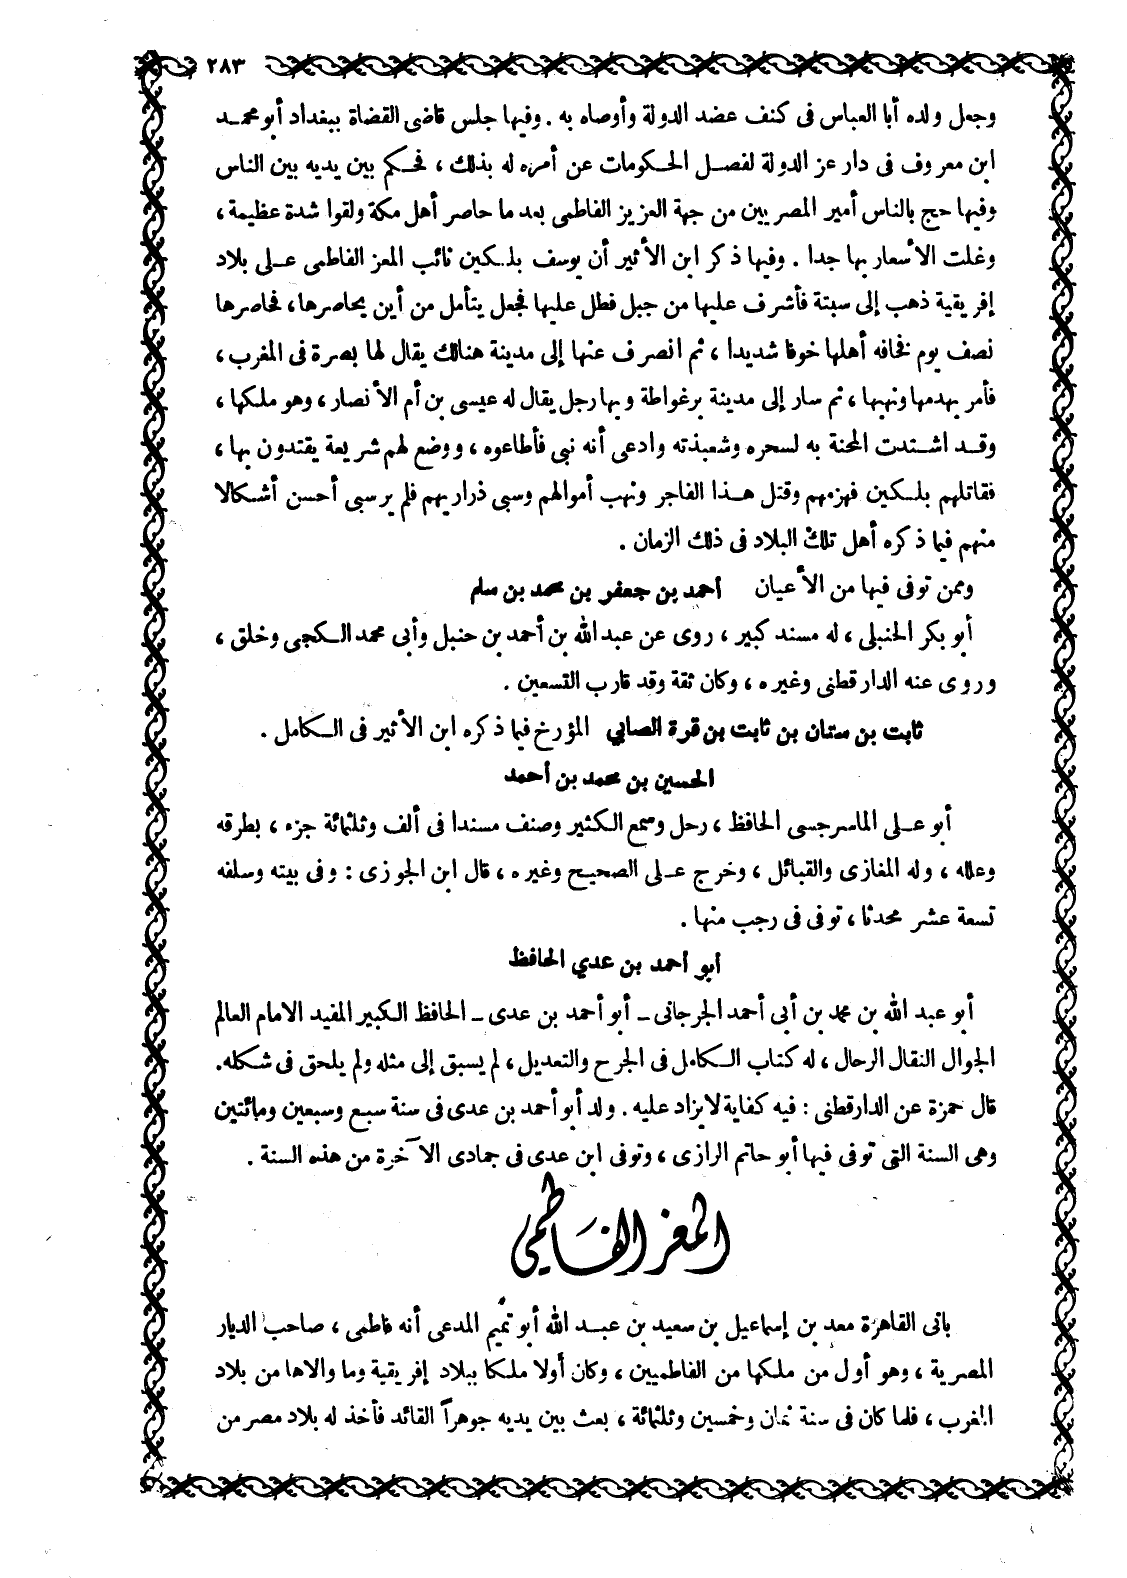 ٢٨٣
وجعل ولده أبا العباس فى كنف عضد الدولة وأوصاه به . وفيها جلس قاضى القضاة ببغداد أبو محمد
ابن معروف فى دار عز الدولة لفصل الحكومات عن أمره له بذلك ، فحكم بين يديه بين الناس
وفيها حج بالناس أمير المصريين من جهة العزيز الفاطمى بعد ما حاصر أهل مكة ولقوا شدة عظيمة ،
وغلت الأسعار بها جدا . وفيها ذكر ابن الأثير أن يوسف بلكين نائب المعز الفاطمى على بلاد
إفريقية ذهب إلى سبتة فأشرف عليها من جبل فطل عليها فجعل يتأمل من أين يحاصرها ، فحاصرها
نصف يوم فخافه أهلها خوفا شديدا ، ثم انصرف عنها إلى مدينة هنالك يقال لها بصرة فى المغرب ،
فأمر بهدمها ونهبها ، ثم سار إلى مدينة برغواطة وبها رجل يقال له عيسى بن أم الأنصار ، وهو ملكها ،
وقد اشتدت المحنة به لسحره وشعبذته وادعى أنه نبى فأطاعوه ، ووضع لهم شريعة يقتدون بها ،
فقاتلهم بلكين فهزمهم وقتل هذا الفاجر ونهب أموالهم وسبى ذراريهم فلم ير سبى أحسن أشكالا
منهم فيما ذكره أهل تلك البلاد فى ذلك الزمان .
وممن توفى فيها من الأعيان أحمد بن جعفر بن محمد بن سلم
أبو بكر الحنبلى ، له مسند كبير ، روى عن عبد الله بن أحمد بن حنبل وأبى محمد الكجى وخلق ،
وروى عنه الدارقطنى وغيره ، وكان ثقة وقد قارب التسعين .
ثابت بن سنان بن ثابت بن قرة الصابي المؤرخ فيما ذكره ابن الأثير فى الكامل .
الحسين بن محمد بن أحمد
أبو على الماسرجسى الحافظ ، رحل وسمع الكثير وصنف مسندا فى ألف وثلثمائة جزء ، بطرقه
وعلله ، وله المغازى والقبائل ، وخرج على الصحيح وغيره ، قال ابن الجوزى : وفى بيته وسلفه
تسعة عشر محدثا ، توفى فى رجب منها .
أبو أحمد بن عدي الحافظ
أبو عبد الله بن محمد بن أبى أحمد الجرجانى ـ أبو أحمد بن عدى ـ الحافظ الكبير المفيد الامام العالم
الجوال النقال الرحال ، له كتاب الكامل فى الجرح والتعديل ، لم يسبق إلى مثله ولم يلحق فى شكله .
قال حمزة عن الدارقطنى : فيه كفاية لا يزاد عليه . ولد أبو أحمد بن عدى فى سنة سبع وسبعين ومائتين
وهى السنة التى توفى فيها أبو حاتم الرازى ، وتوفى ابن عدى فى جمادى الآخرة من هذه السنة .
المعز الفاطمي
بانى القاهرة معد بن إسماعيل بن سعيد بن عبد الله أبو تميم المدعى أنه فاطمى ، صاحب الديار
المصرية ، وهو أول من ملكها من الفاطميين ، وكان أولا ملكا ببلاد إفريقية وما والاها من بلاد
المغرب ، فلما كان فى سنة ثمان وخمسين وثلثمائة ، بعث بين يديه جوهراً القائد فأخذ له بلاد مصر من